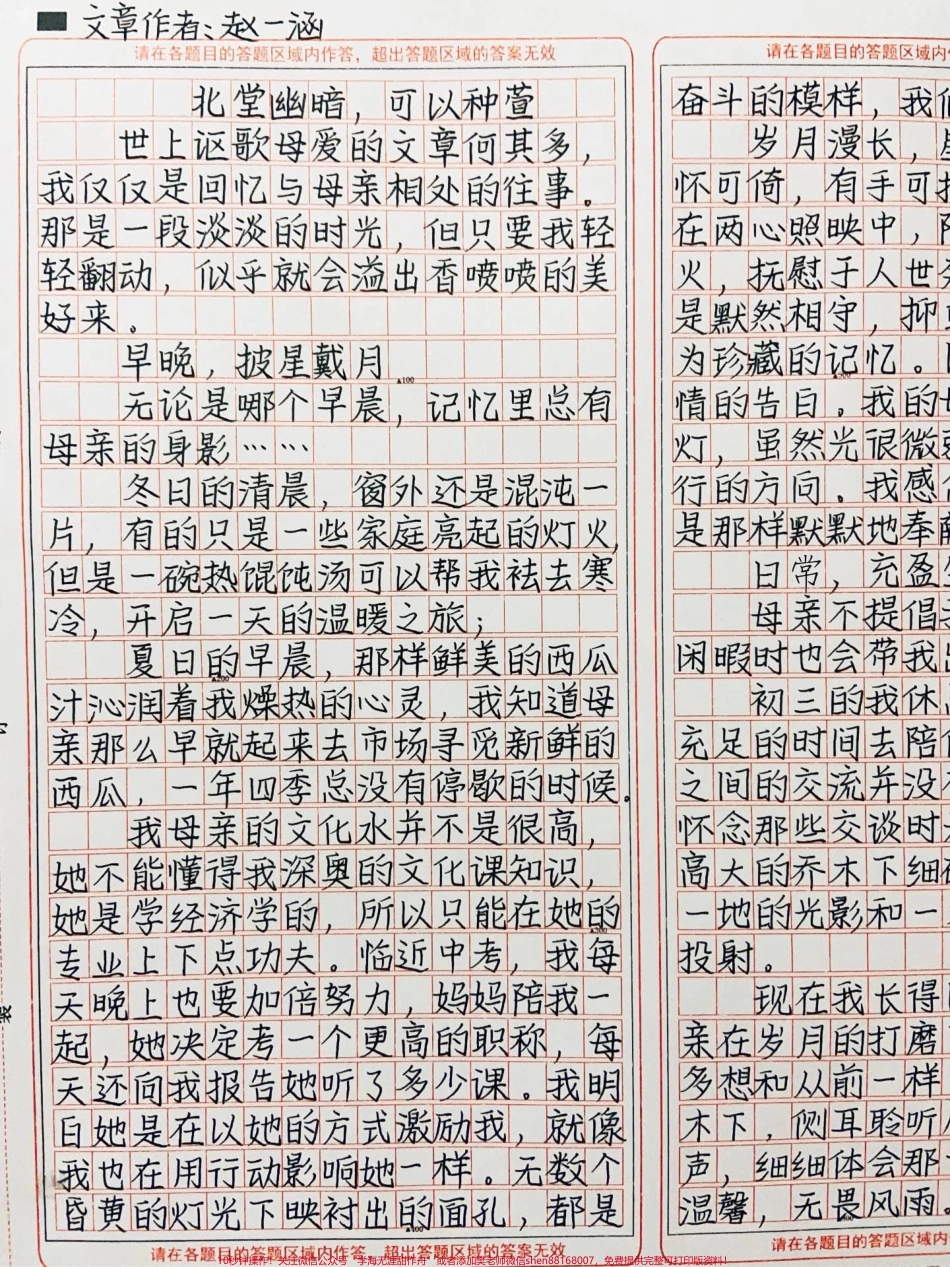 文章作者：赵一涵
请在各题目的答题区域内作答，超出答题区域的答案无效
北堂幽暗，可以种萱
世上讴歌母爱的文章何其多，
我仅仅是回忆与母亲相处的往事。
那是一段淡淡的时光，但只要我轻
轻翻动，似乎就会溢出香喷喷的美
好来。
早晚，披星戴月
▲100
无论是哪个早晨，记忆里总有
母亲的身影……
冬日的清晨，窗外还是混沌一
片，有的只是一些家庭亮起的灯火，
但是一碗热馄饨汤可以帮我祛去寒
冷，开启一天的温暖之旅；
夏日的早晨，那样鲜美的西瓜
▲200
汁沁润着我燥热的心灵，我知道母
亲那么早就起来去市场寻觅新鲜的
西瓜，一年四季总没有停歇的时候。
我母亲的文化水并不是很高，
她不能懂得我深奥的文化课知识，
她是学经济学的，所以只能在她的
▲300
专业上下点功夫。临近中考，我每
天晚上也要加倍努力，妈妈陪我一
起，她决定考一个更高的职称，每
天还向我报告她听了多少课。我明
白她是在以她的方式激励我，就像
我也在用行动影响她一样。无数个
昏黄的灯光下映衬出的面孔，都是
▲400
请在各题目的答题区域内作答，超出答题区域的答案无效
请在各题目的答题区域内
奋斗的模样，我们
岁月漫长，
怀可倚，有手可
在两心照映中，
火，抚慰于人世
是默然相守，抑
为珍藏的记忆。
情的告白。我的
灯，虽然光很微
行的方向。我感
是那样默默地奉献
日常，充盈
母亲不提倡
闲暇时也会带我
初三的我休
充足的时间去陪
之间的交流并没
怀念那些交谈时
高大的乔木下细
一地的光影和一
投射。
现在我长得
亲在岁月的打磨
多想和从前一样
木下，侧耳聆听
声，细细体会那
温馨，无畏风雨。
请在各题目的答题区域内
10秒钟操作！关注微信公众号“学海无涯甜作舟”或者添加樊老师微信shen88168007，免费提供完整可打印版资料！